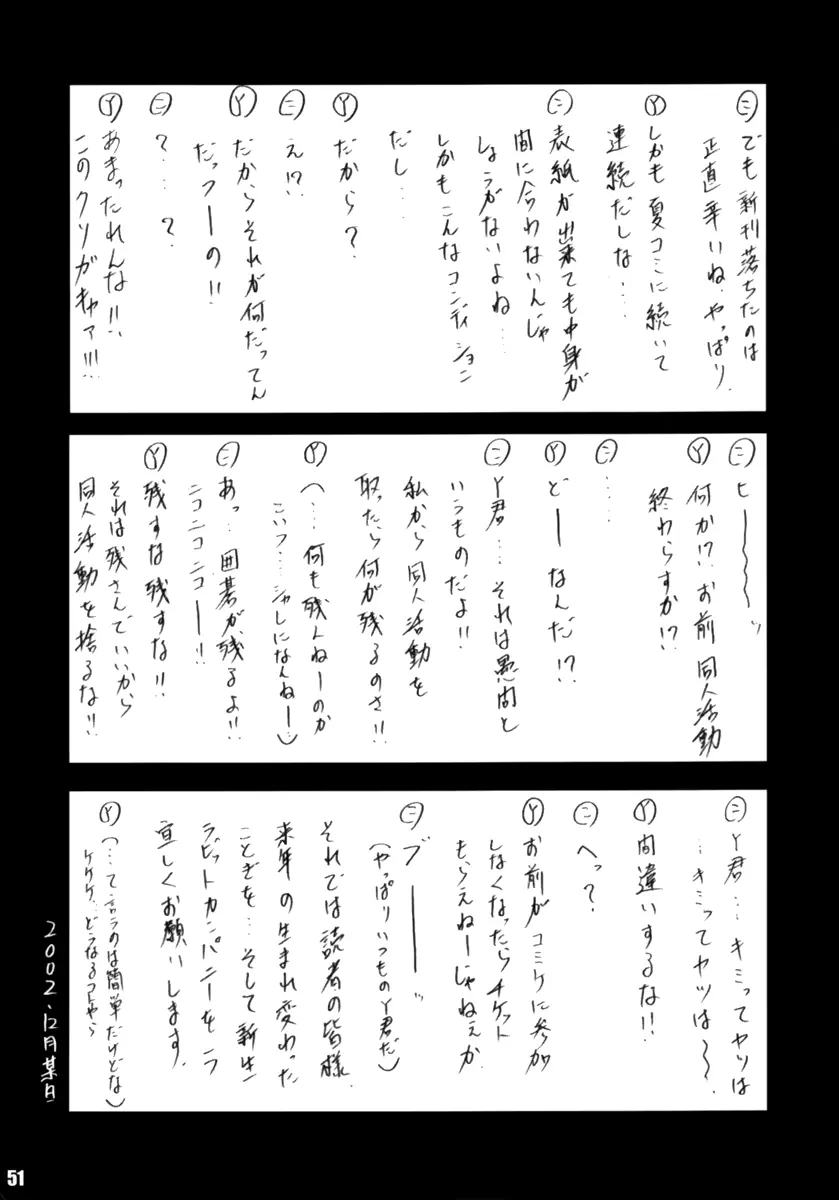 ㊁でも新刊落ちたのは
正直辛いね、やっぱり、
Ⓨしかも夏コミに続いて
連続だしな‥‥
㊁表紙が出来ても中身が
間に合わないんじゃ
しょうがないよね‥‥
しかもこんなコンディション
だし‥‥
Ⓨだから？
㊁え!?
Ⓨだからそれが何だってん
だっつーの!!
㊁？‥‥？
Ⓨあまったれんな!!
このクソがキャア!!!
㊁ヒー～～～ッ
Ⓨ何か!? お前同人活動
終わらすか!?
㊁‥‥‥
Ⓨどーなんだ!?
㊁Y君‥‥それは愚問と
いうものだよ!!
私から同人活動を
取ったら何が残るのさ!!
Ⓨ(‥‥何も残んねーのか
こいつ‥‥シャレになんねー‥)
㊁あっ‥囲碁が残るよ!!
ニコニコニコー!!
Ⓨ残すな残すな!!
それは残さんでいいから
同人活動を捨るな!!
㊁Y君‥‥キミってヤツは
‥キミってヤツは～～、
Ⓨ間違いするな!!
㊁へっ？
Ⓨお前がコミケに参加
しなくなったらチケット
もらえねーじゃねぇか
㊁ブーーーッ
(やっぱりいつものY君だ)
それでは読者の皆様
来年の生まれ変わった
ことぎを‥そして新生
ラビットカンパニーをっ
宜しくお願いします、
Ⓨ(‥‥て言うのは簡単だけどな
ケケケ‥どうなるコトやら)
2002、12月某日
51